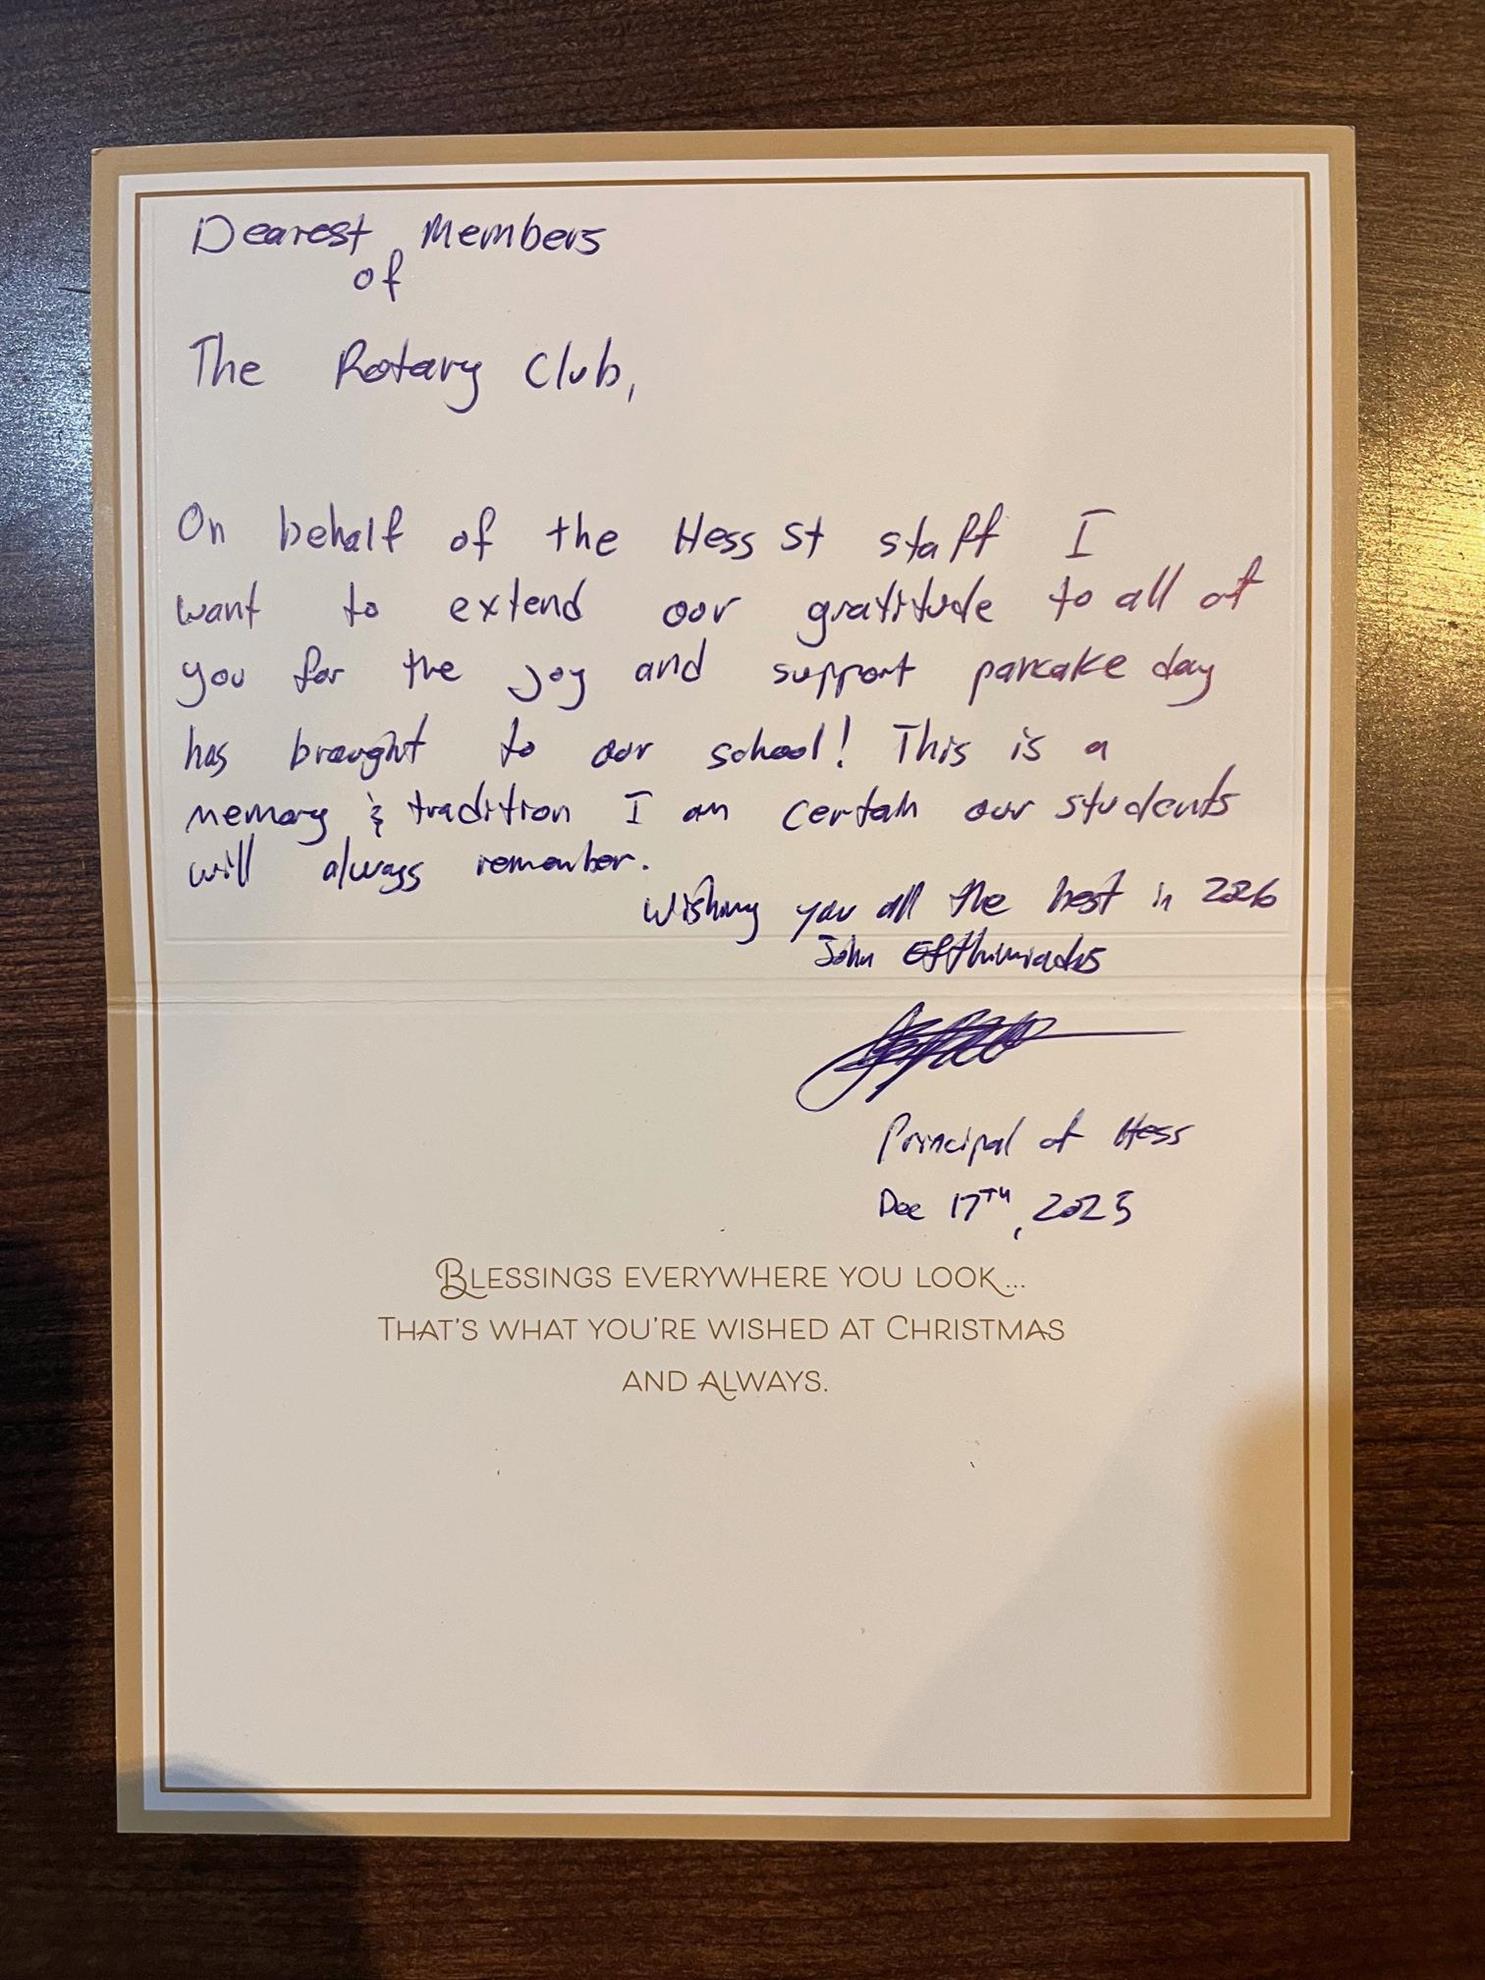 Dearest Members
of
The Rotary Club,
On behalf of the Hess St staff I
want to extend our gratitude to all of
you for the joy and support pancake day
has brought to our school! This is a
memory & tradition I am certain our students
will always remember.
Wishing you all the best in 2026
John Efthimiadis
Principal of Hess
Dec 17TH, 2025
BLESSINGS EVERYWHERE YOU LOOK...
THAT'S WHAT YOU'RE WISHED AT CHRISTMAS
AND ALWAYS.